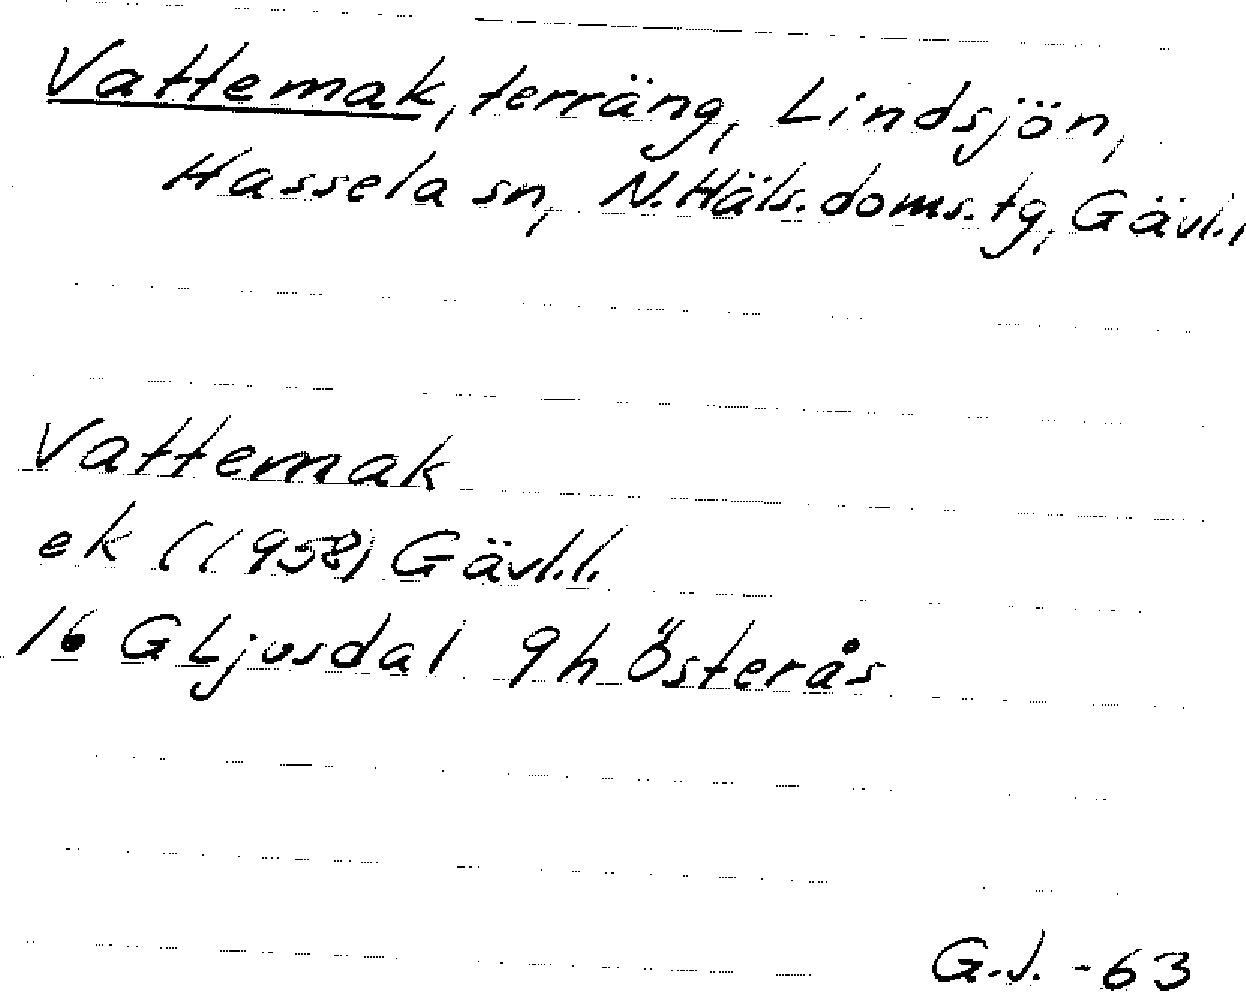 Vattemak, terräng, Lindsjön,
Hassela sn, N. Häls. doms. tg, Gävl. l
Vattemak
ek (1958) Gävl. l.
16 G Ljusdal 9 h Österås
G.J. -63